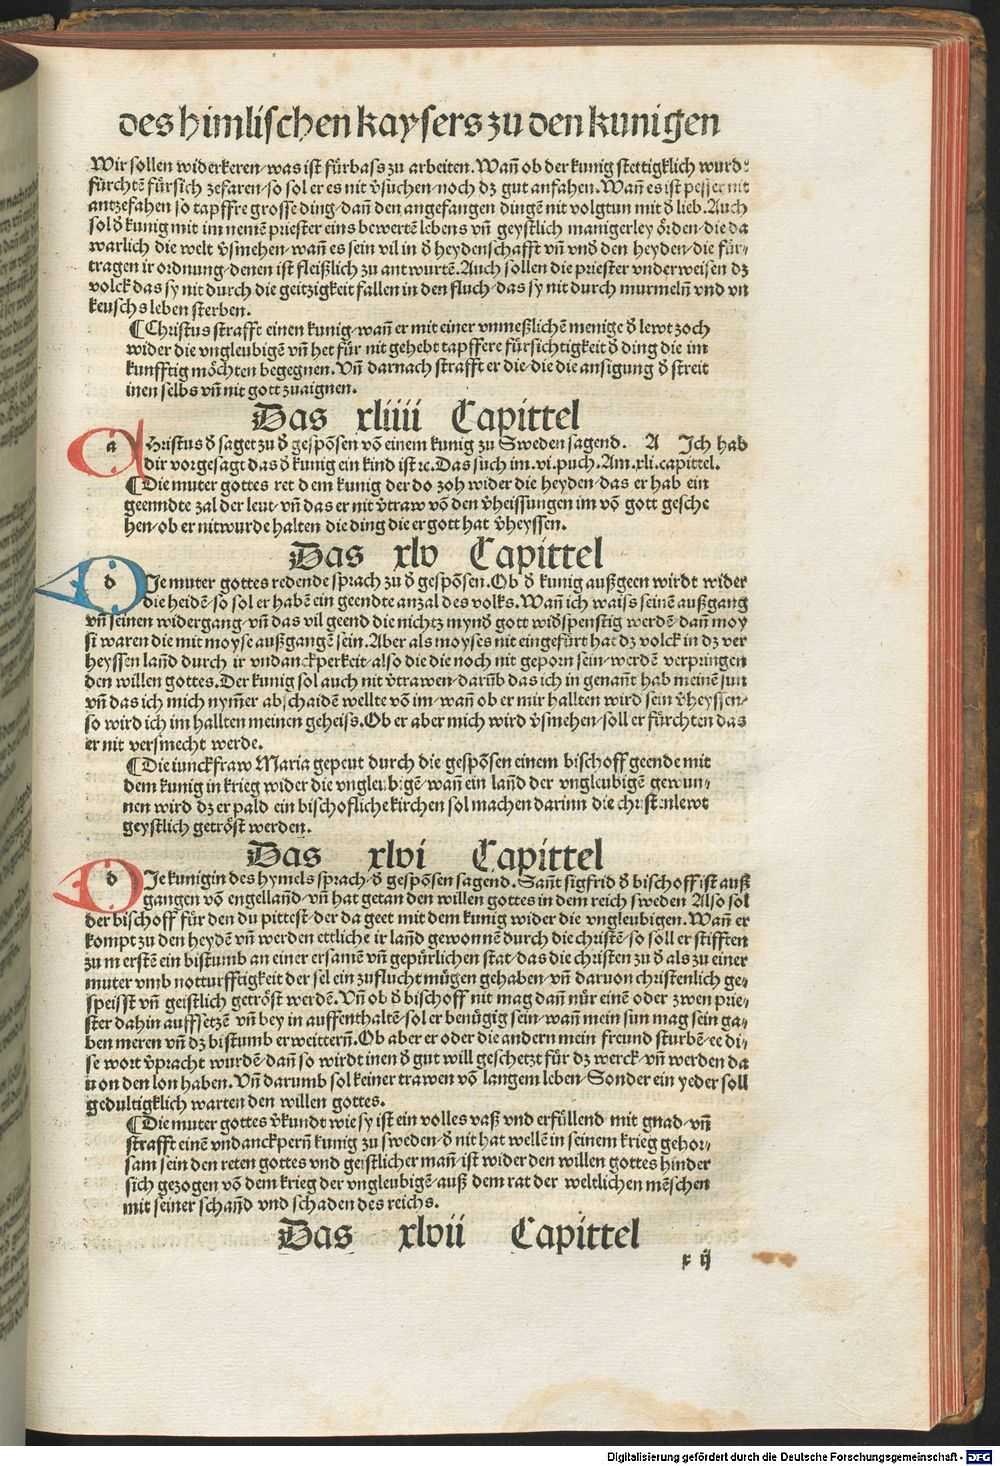 des himlischen kaysers zu den kunigen
Wir sollen widerkeren/was ist fürbass zu arbeiten. Wañ ob der kunig stettigklich wurd
fürchtē fürsich zefaren/so sol er es nit v̄suchen/noch dz gut anfahen. Wañ es ist pesser nit
antzefahen so tapffre grosse ding/dañ den angefangen dingē nit volgtun mit d̄ lieb. Auch
sol d̄ kunig mit im nemē priester eins bewertē lebens vñ geystlich manigerley örden/die da
warlich die welt v̄smehen/wañ es sein vil in d̄ heydenschafft vñ vnd̄ den heyden/die für⸗
tragen ir ordnung/denen ist fleißlich zu antwurtē. Auch sollen die priester vnderweisen dz
volck das sy nit durch die geitzigkeit fallen in den fluch/das sy nit durch murmelñ vnd vn
keuschs leben sterben.
¶ Christus strafft einen kunig/wañ er mit einer vnmeßlichē menige d̄ lewt zoch
wider die vngleubigē vñ het für nit gehebt tapffere fürsichtigkeit d̄ ding die im
kunfftig möchten begegnen. Vñ darnach strafft er die/die die ansigung d̄ streit
inen selbs vñ nit gott zuaignen.
Das xliiii Capittel
a hristus d̄ saget zu d̄ gespōsen vō einem kunig zu Sweden sagend. A Ich hab
dir vorgesagt das d̄ kunig ein kind ist ꝛc. Das such im .vi. puch. Am .xli. capittel.
¶ Die muter gottes ret dem kunig der do zoh wider die heyden/das er hab ein
geenndte zal der leut/vñ das er nit v̄traw vō den v̄heissungen im vō gott gesche
hen/ob er nit wurde halten die ding die er gott hat v̄heyssen.
Das xlv Capittel
d Ie muter gottes redende sprach zu d̄ gespōsen. Ob d̄ kunig außgeen wirdt wider
die heidē/so sol er habē ein geendte anzal des volks. Wañ ich waiss seinē außgang
vñ seinen widergang/vñ das vil geend die nichtz mynd̄ gott wid̄spenstig werdē/dañ moy
si waren die mit moyse außgangē sein. Aber als moyses nit eingefürt hat dz volck in dz ver
heyssen lañd durch ir vndanckperkeit/also die die noch nit geporn sein/werdē verpringen
den willen gottes. Der kunig sol auch nit v̄trawen/darūb das ich in genañt hab meinē sun
vñ das ich mich nym̄er abschaidē wellte vō im/wañ ob er mir hallten wird sein v̄heyssen/
so wird ich im hallten meinen geheiss. Ob er aber mich wird v̄smehen/soll er fürchten das
er nit versmecht werde.
¶ Die iunckfraw Maria gepeut durch die gespōsen einem bischoff geende mit
dem kunig in krieg wider die vngleubigē/wañ ein lañd der vngleubigē gewun⸗
nen wird dz er pald ein bischofliche kirchen sol machen darinn die christenlewt
geystlich getröst werden.
Das xlvi Capittel
d Ie kunigin des hymels sprach/d̄ gespōsen sagend. Sañt sigfrid d̄ bischoff ist auß
gangen vō engellañd/vñ hat getan den willen gottes in dem reich sweden Also sol
der bischoff für den du pittest/der da geet mit dem kunig wider die vngleubigen. Wañ er
kompt zu den heydē vñ werden ettliche ir lañd gewonnē durch die christē/so soll er stifften
zum erstē ein bistumb an einer ersamē vñ gepürlichen stat/das die christen zu d̄ als zu einer
muter vmb notturfftigkeit der sel ein zuflucht mügen gehaben/vñ daruon christenlich ge⸗
speisst vñ geistlich getröst werdē. Vñ ob d̄ bischoff nit mag dañ nür einē oder zwen prie⸗
ster dahin auffsetzē vñ bey in auffenthaltē/sol er benügig sein/wañ mein sun mag sein ga⸗
ben meren vñ dz bistumb erweitterñ. Ob aber er oder die andern mein freund sturbē/ee di⸗
se wort v̄pracht wurdē/dañ so wirdt inen d̄ gut will geschetzt für dz werck/vñ werden da
uon den lon haben. Vñ darumb sol keiner trawen vō langem leben/Sonder ein yeder soll
gedultigklich warten den willen gottes.
¶ Die muter gottes v̄kundt wie sy ist ein volles vaß vnd erfüllend mit gnad/vñ
strafft einē vndanckperñ kunig zu sweden/d̄ nit hat wellē in seinem krieg gehor⸗
sam sein den reten gottes vnd geistlicher mañ/ist wider den willen gottes hinder
sich gezogen vō dem krieg der vngleubigē/auß dem rat der weltlichen mēschen
mit seiner schañd vnd schaden des reichs.
Das xlvii Capittel
x ij
Digitalisierung gefördert durch die Deutsche Forschungsgemeinschaft - DFG